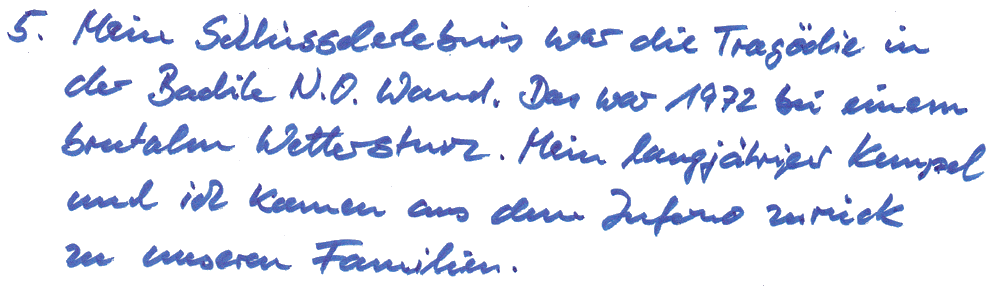 5. Mein Schlüsselerlebnis war die Tragödie in
der Badile N.O. Wand. Das war 1972 bei einem
brutalen Wettersturz. Mein langjähriger Kumpel
und ich kamen aus dem Inferno zurück
zu unseren Familien.